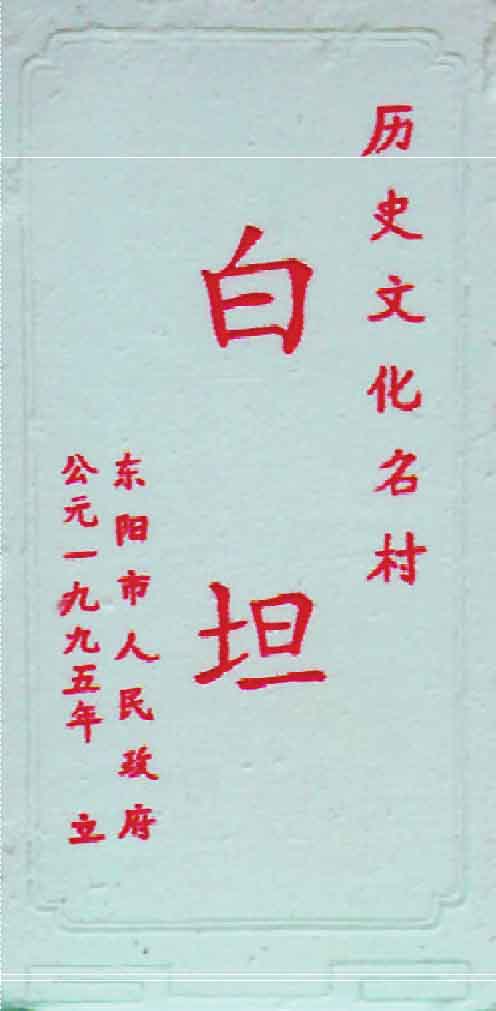 历史文化名村
白坦
东阳市人民政府
公元一九九五年 立